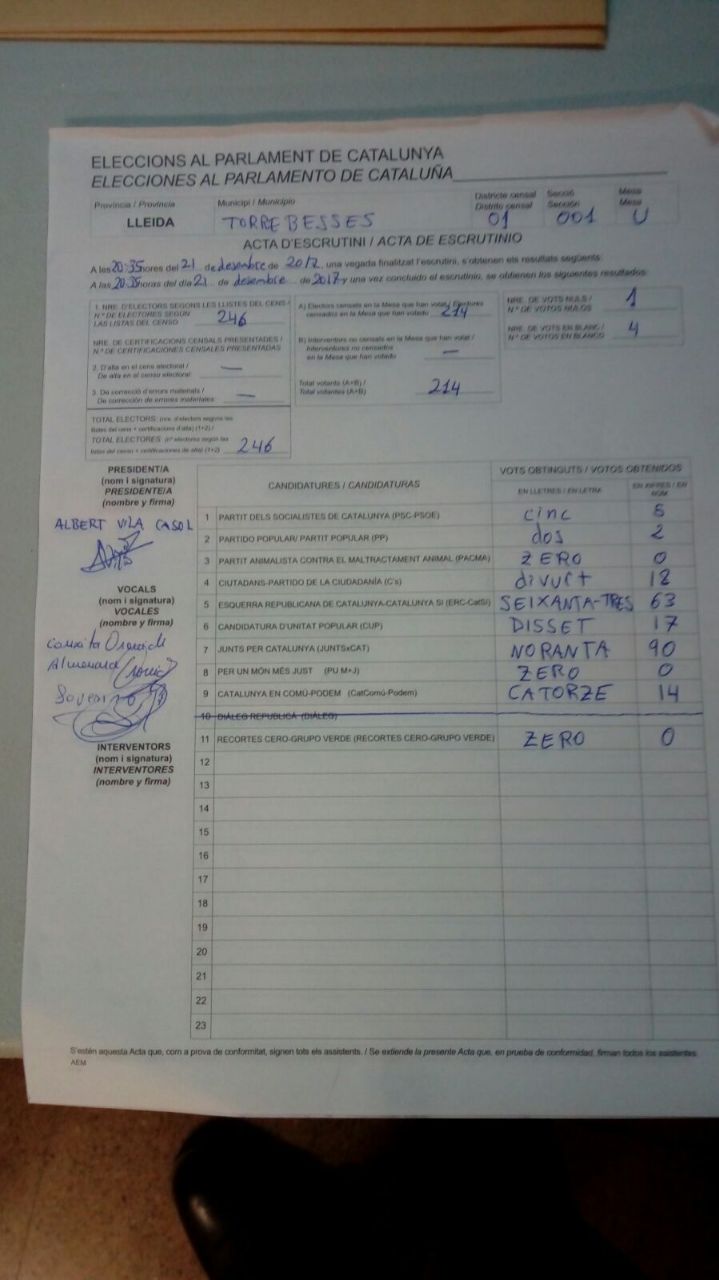 ELECCIONS AL PARLAMENT DE CATALUNYA
ELECCIONES AL PARLAMENTO DE CATALUÑA
Província / Provincia Municipi / Municipio Districte censal Secció Mesa
Distrito censal Sección Mesa
LLEIDA TORREBESSES 01 001 U
ACTA D'ESCRUTINI / ACTA DE ESCRUTINIO
A les 20:35 hores del 21 de desembre de 2017, una vegada finalitzat l'escrutini, s'obtenen els resultats següents:
A las 20:35 horas del día 21 de desembre de 2017 y una vez concluido el escrutinio, se obtienen los siguientes resultados:
1. NRE. D'ELECTORS SEGONS LES LLISTES DEL CENS /
N.º DE ELECTORES SEGÚN
LAS LISTAS DEL CENSO 246
NRE. DE CERTIFICACIONS CENSALS PRESENTADES /
N.º DE CERTIFICACIONES CENSALES PRESENTADAS
2. D'alta en el cens electoral /
De alta en el censo electoral: —
3. De correcció d'errors materials /
De corrección de errores materiales: —
TOTAL ELECTORS: (nre. d'electors segons les
llistes del cens + certificacions d'alta) (1+2) /
TOTAL ELECTORES: (nº electores según las
listas del censo + certificaciones de alta) (1+2) 246
A) Electors censats en la Mesa que han votat / Electores
censados en la Mesa que han votado 214
B) Interventors no censats en la Mesa que han votat /
Interventores no censados
en la Mesa que han votado —
Total votants (A+B) /
Total votantes (A+B) 214
NRE. DE VOTS NULS /
N.º DE VOTOS NULOS 1
NRE. DE VOTS EN BLANC /
N.º DE VOTOS EN BLANCO 4
PRESIDENT/A
(nom i signatura)
PRESIDENTE/A
(nombre y firma)
ALBERT VILA CASOL
VOCALS
(nom i signatura)
VOCALES
(nombre y firma)
INTERVENTORS
(nom i signatura)
INTERVENTORES
(nombre y firma)
CANDIDATURES / CANDIDATURAS VOTS OBTINGUTS / VOTOS OBTENIDOS
EN LLETRES / EN LETRA EN XIFRES / EN NÚM.
1 PARTIT DELS SOCIALISTES DE CATALUNYA (PSC-PSOE) cinc 5
2 PARTIDO POPULAR/ PARTIT POPULAR (PP) dos 2
3 PARTIT ANIMALISTA CONTRA EL MALTRACTAMENT ANIMAL (PACMA) ZERO 0
4 CIUTADANS-PARTIDO DE LA CIUDADANÍA (C's) divuit 18
5 ESQUERRA REPUBLICANA DE CATALUNYA-CATALUNYA SÍ (ERC-CatSí) SEIXANTA-TRES 63
6 CANDIDATURA D'UNITAT POPULAR (CUP) DISSET 17
7 JUNTS PER CATALUNYA (JUNTSxCAT) NORANTA 90
8 PER UN MÓN MÉS JUST (PU M+J) ZERO 0
9 CATALUNYA EN COMÚ-PODEM (CatComú-Podem) CATORZE 14
10 DIÀLEG REPUBLICÀ (DIÀLEG)
11 RECORTES CERO-GRUPO VERDE (RECORTES CERO-GRUPO VERDE) ZERO 0
12
13
14
15
16
17
18
19
20
21
22
23
S'estén aquesta Acta que, com a prova de conformitat, signen tots els assistents. / Se extiende la presente Acta que, en prueba de conformidad, firman todos los asistentes.
AEM